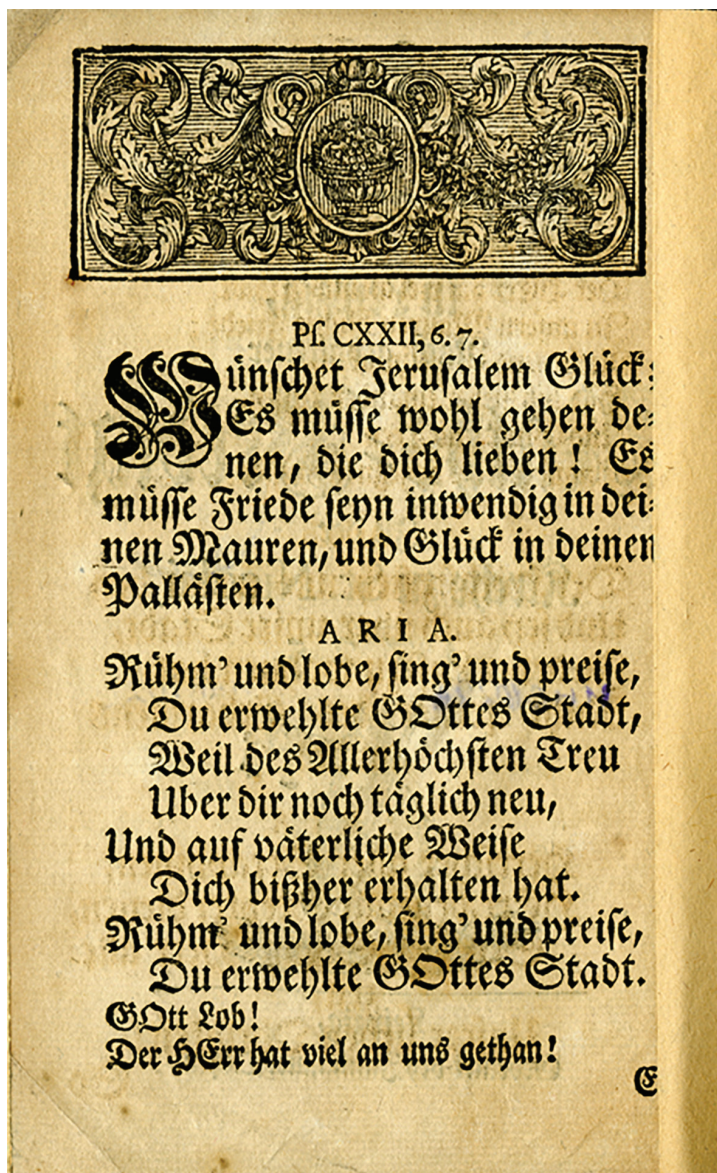 Pſ. CXXII, 6. 7.
Wünſchet Jeruſalem Glück:
Es müſſe wohl gehen de⸗
nen, die dich lieben! Es
müſſe Friede ſeyn inwendig in dei⸗
nen Mauren, und Glück in deinen
Palläſten.
ARIA.
Rühm’ und lobe, ſing’ und preiſe,
Du erwehlte GOttes Stadt,
Weil des Allerhöchſten Treu
Uber dir noch täglich neu,
Und auf väterliche Weiſe
Dich bißher erhalten hat.
Rühm’ und lobe, ſing’ und preiſe,
Du erwehlte GOttes Stadt.
GOtt Lob!
Der HErr hat viel an uns gethan!
E